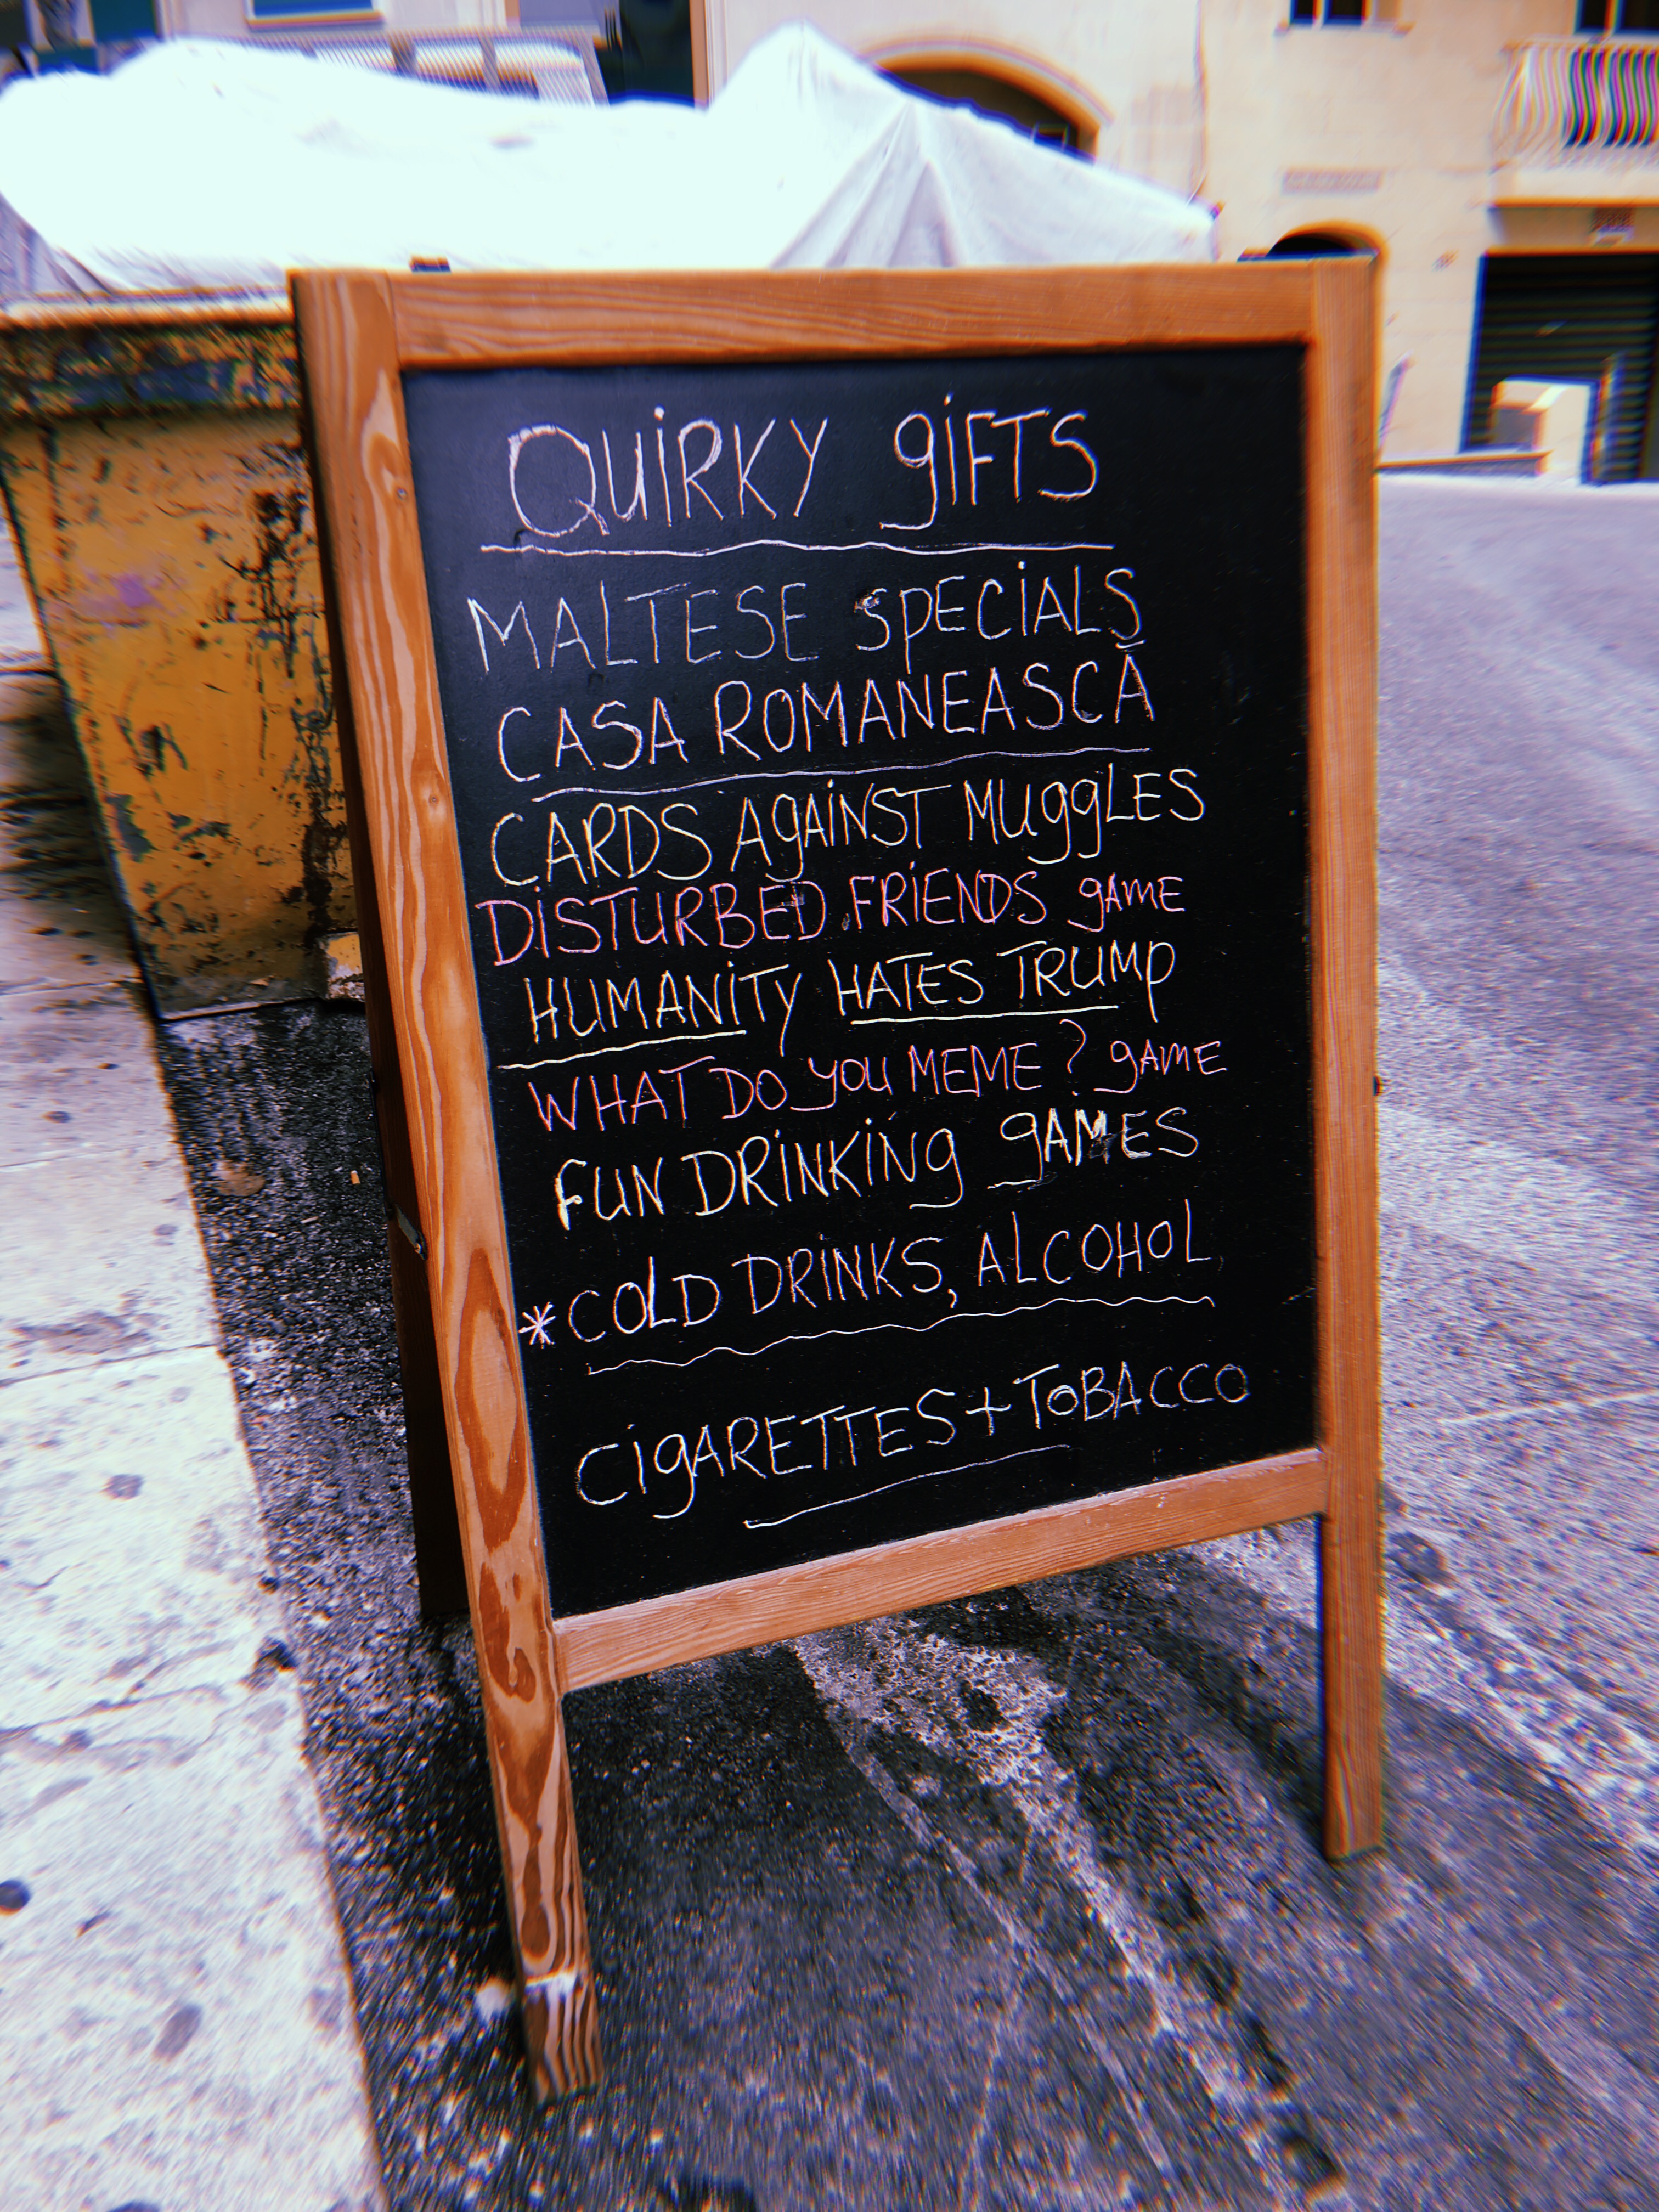 QUiRKY giFTS
MALTESE SPECiALS
CASA ROMANEASCĂ
CARDS AgAiNST MUggLES
DiSTURBED FRiENDS gAME
HUMANiTY HATES TRUMP
WHAT DO YOU MEME? gAME
FUN DRiNKiNg gAMES
*COLD DRiNKS, ALCOHOL
CigARETTES + TOBACCO